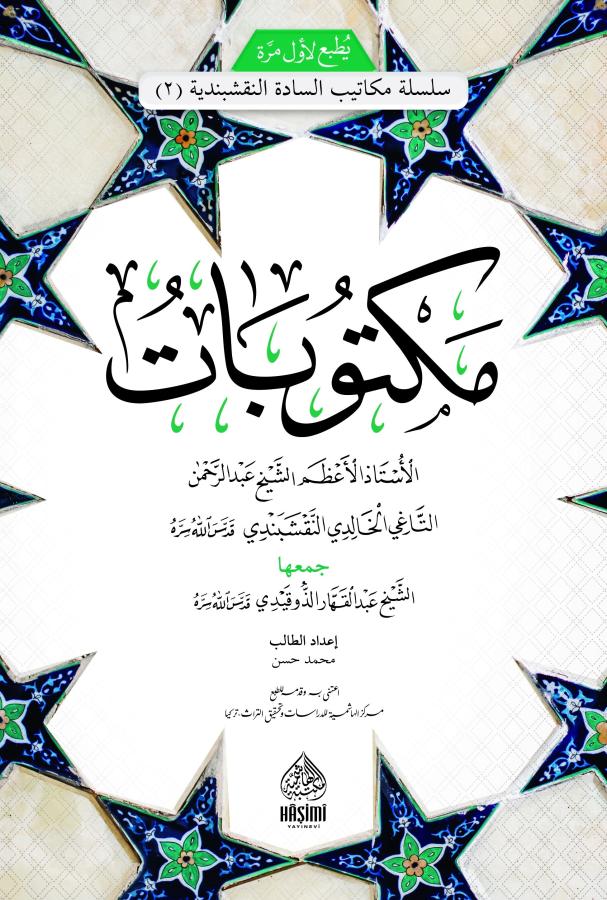 يُطبع لأول مرَّة
سلسلة مكاتيب السادة النقشبندية (٢)
مَكتُوبَاتُ
الأُسْتَاذ الأَعْظَم الشَّيْخ عَبْد الرَّحْمٰن
التَّاغِي الخَالِدِي النَّقْشَبَنْدِي قَدَّسَ اللهُ سِرَّهُ
جمعها
الشَّيْخ عَبْد القَهَّار الذُّوقَيْدِي قَدَّسَ اللهُ سِرَّهُ
إعداد الطالب
محمد حسن
اعتنى به وقدمه للطبع
مركز الهاشمية للدراسات وتحقيق التراث، تركيا
المكتبة الهاشمية
HÂŞİMÎ
YAYINEVİ